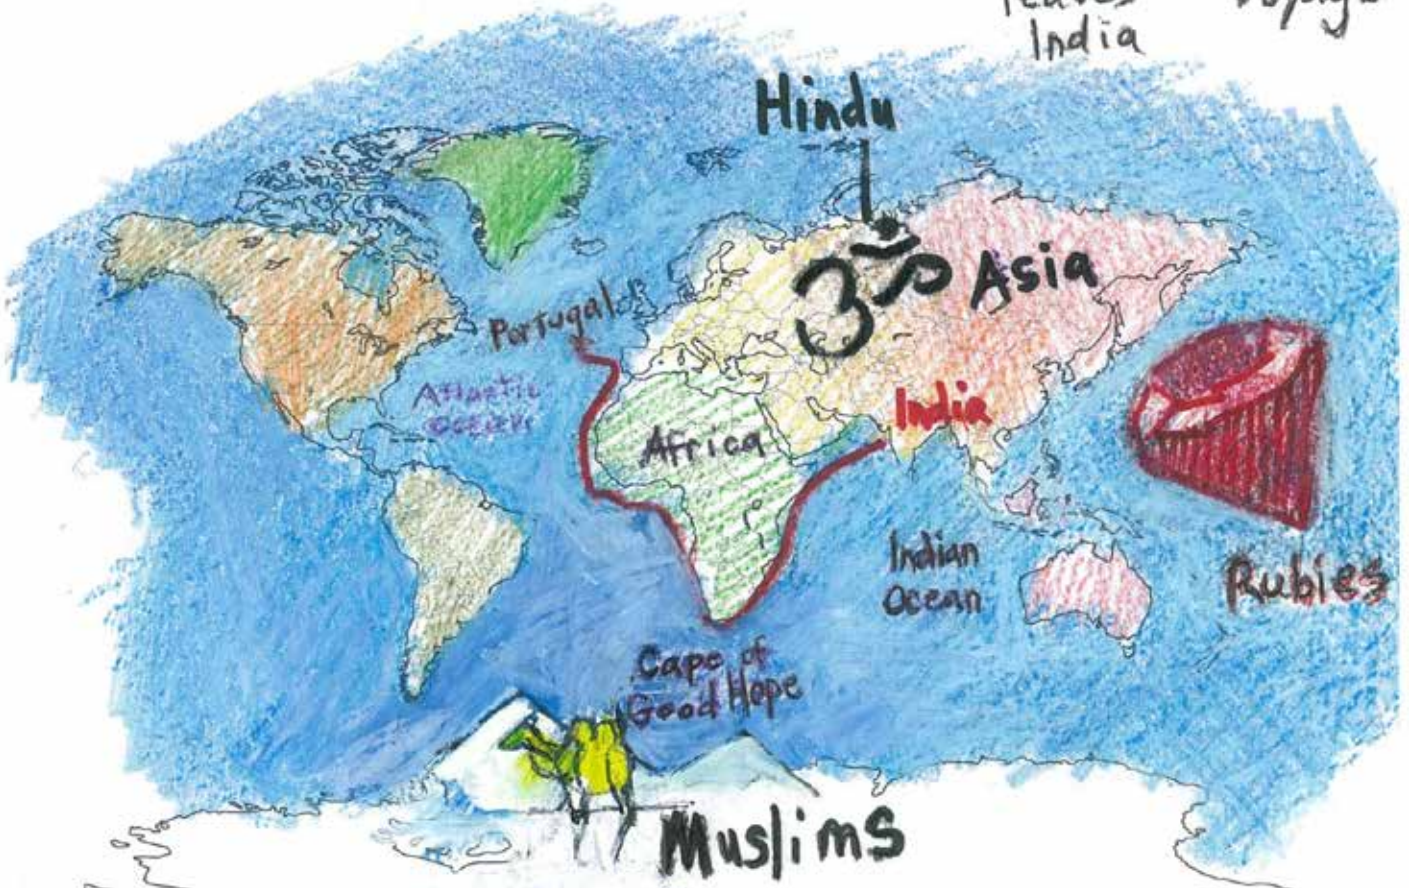 India
Hindu
ॐ
Asia
Portugal
Atlantic
Ocean
India
Africa
Indian
Ocean
Rubies
Cape of
Good Hope
Muslims